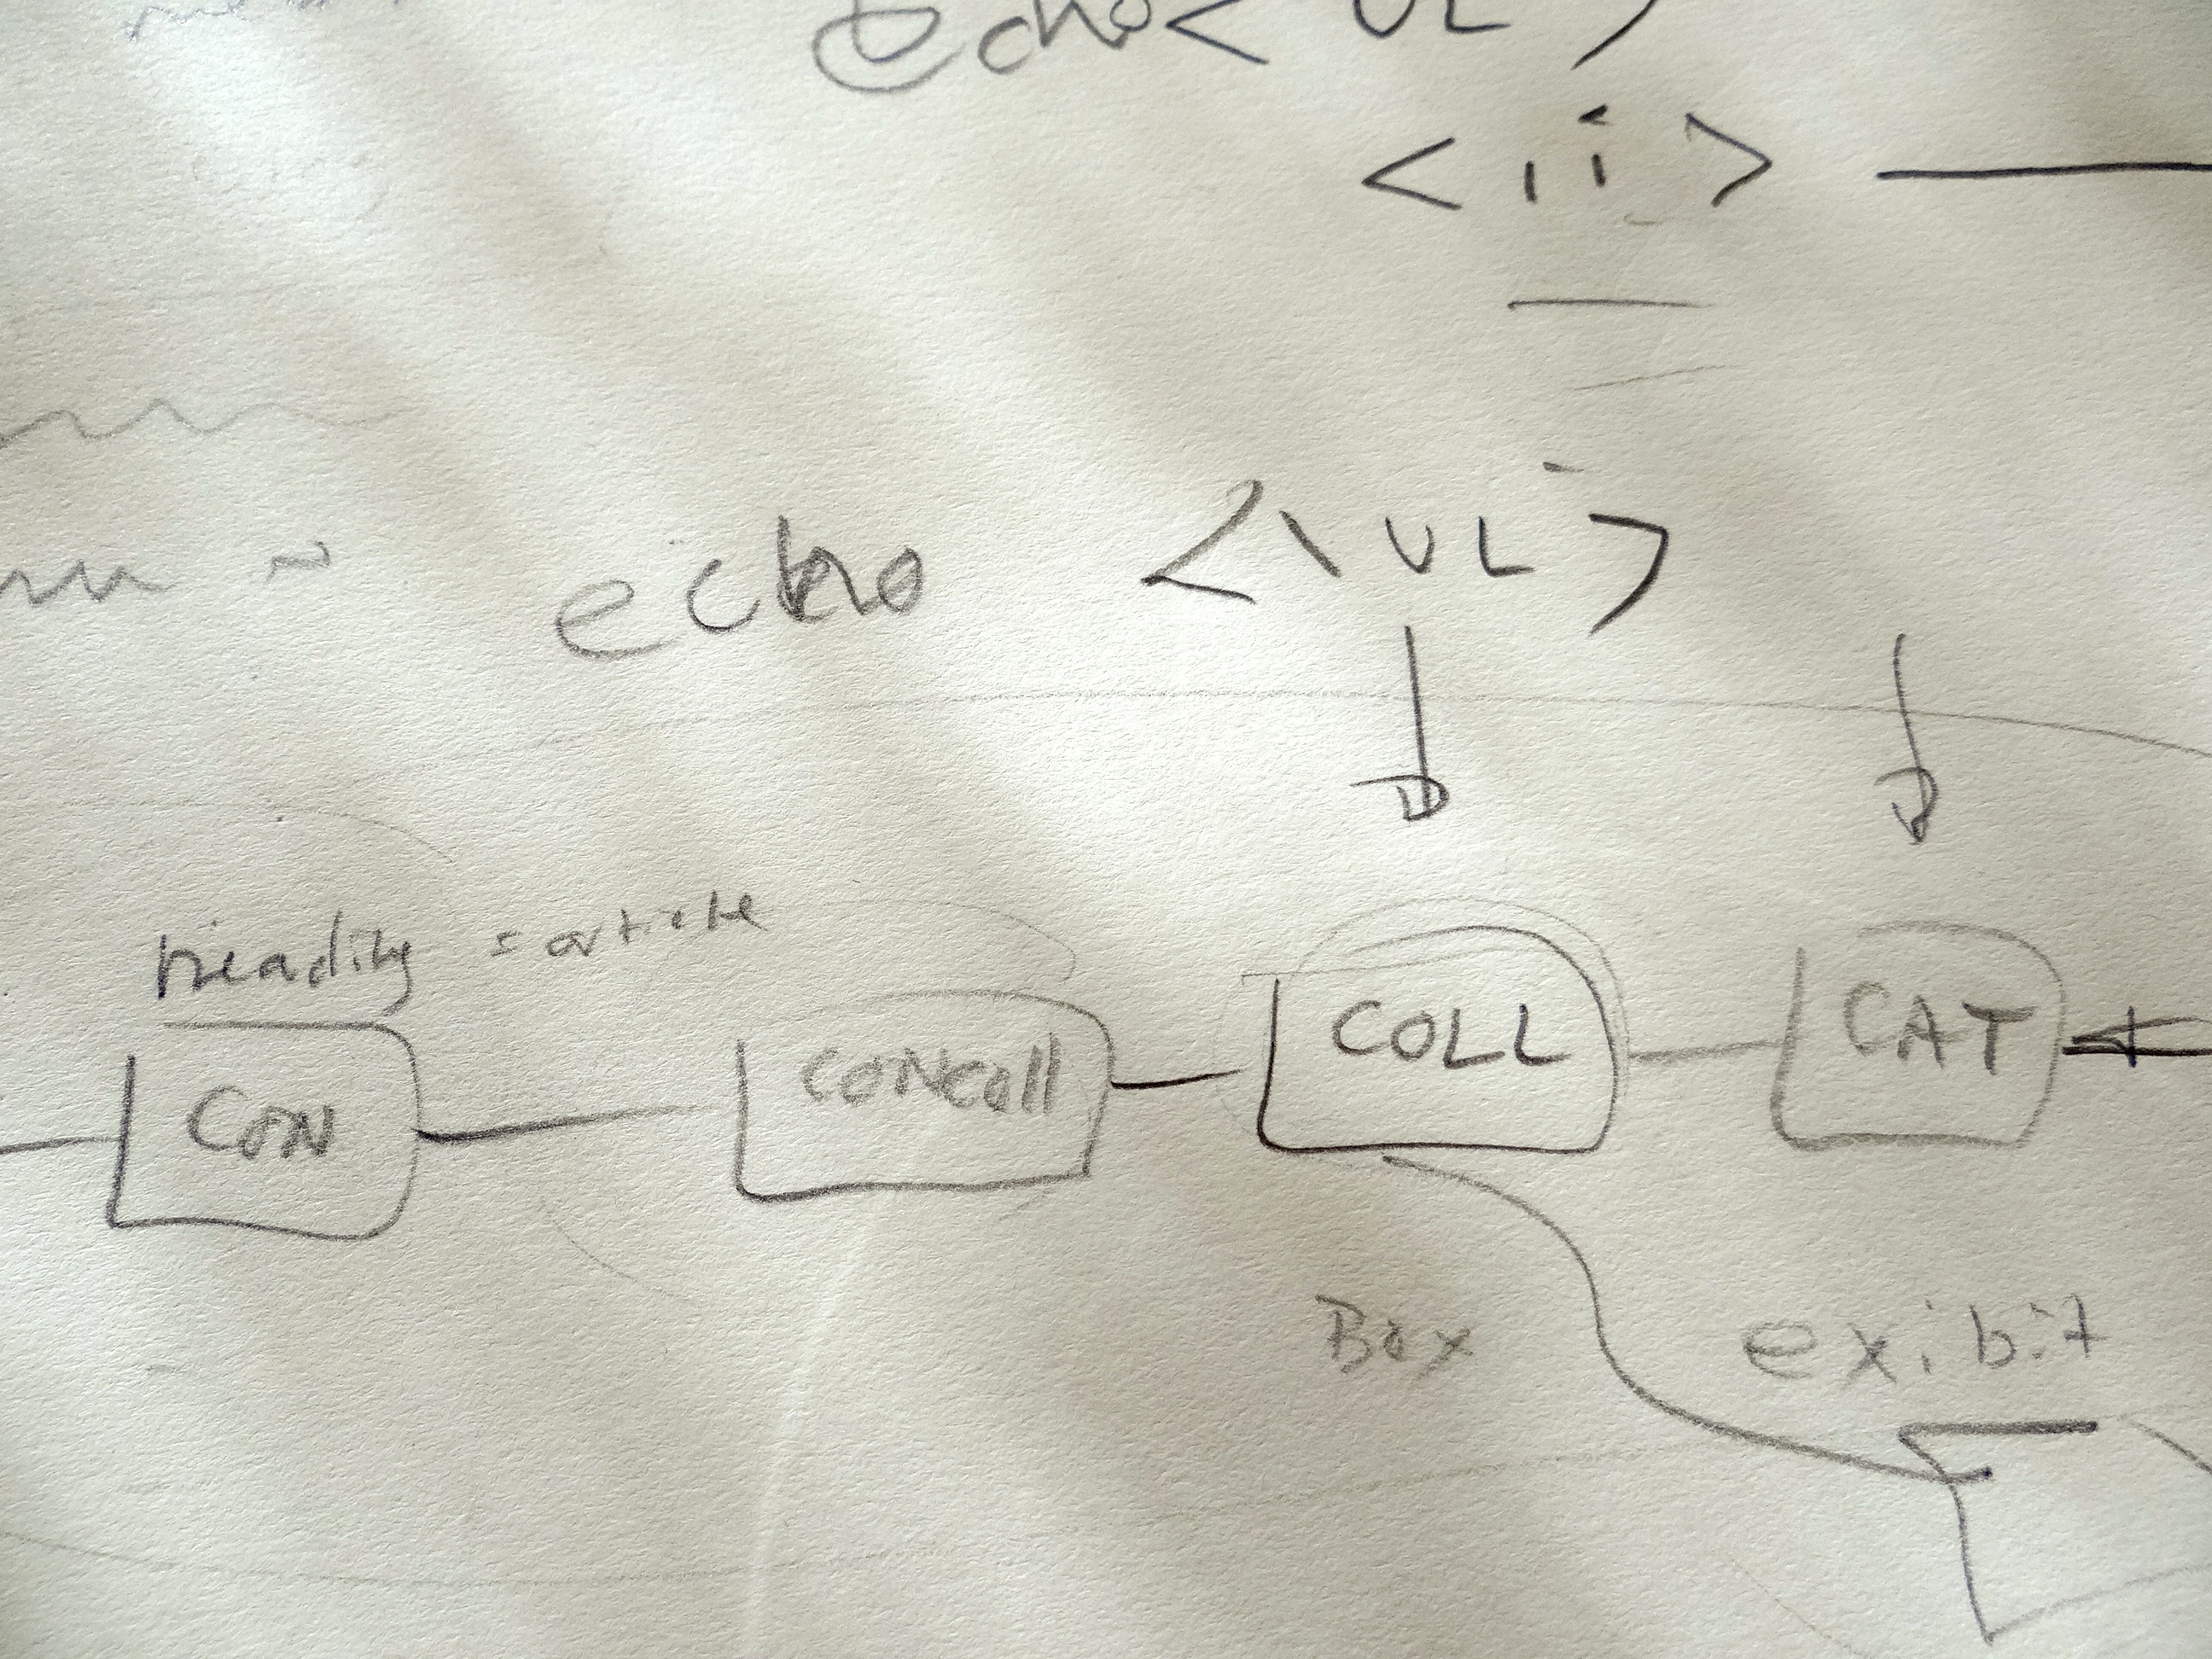 echo < UL >
< ii >
echo <\ UL >
heading = article
CON CONColl COLL CAT
Box exibit